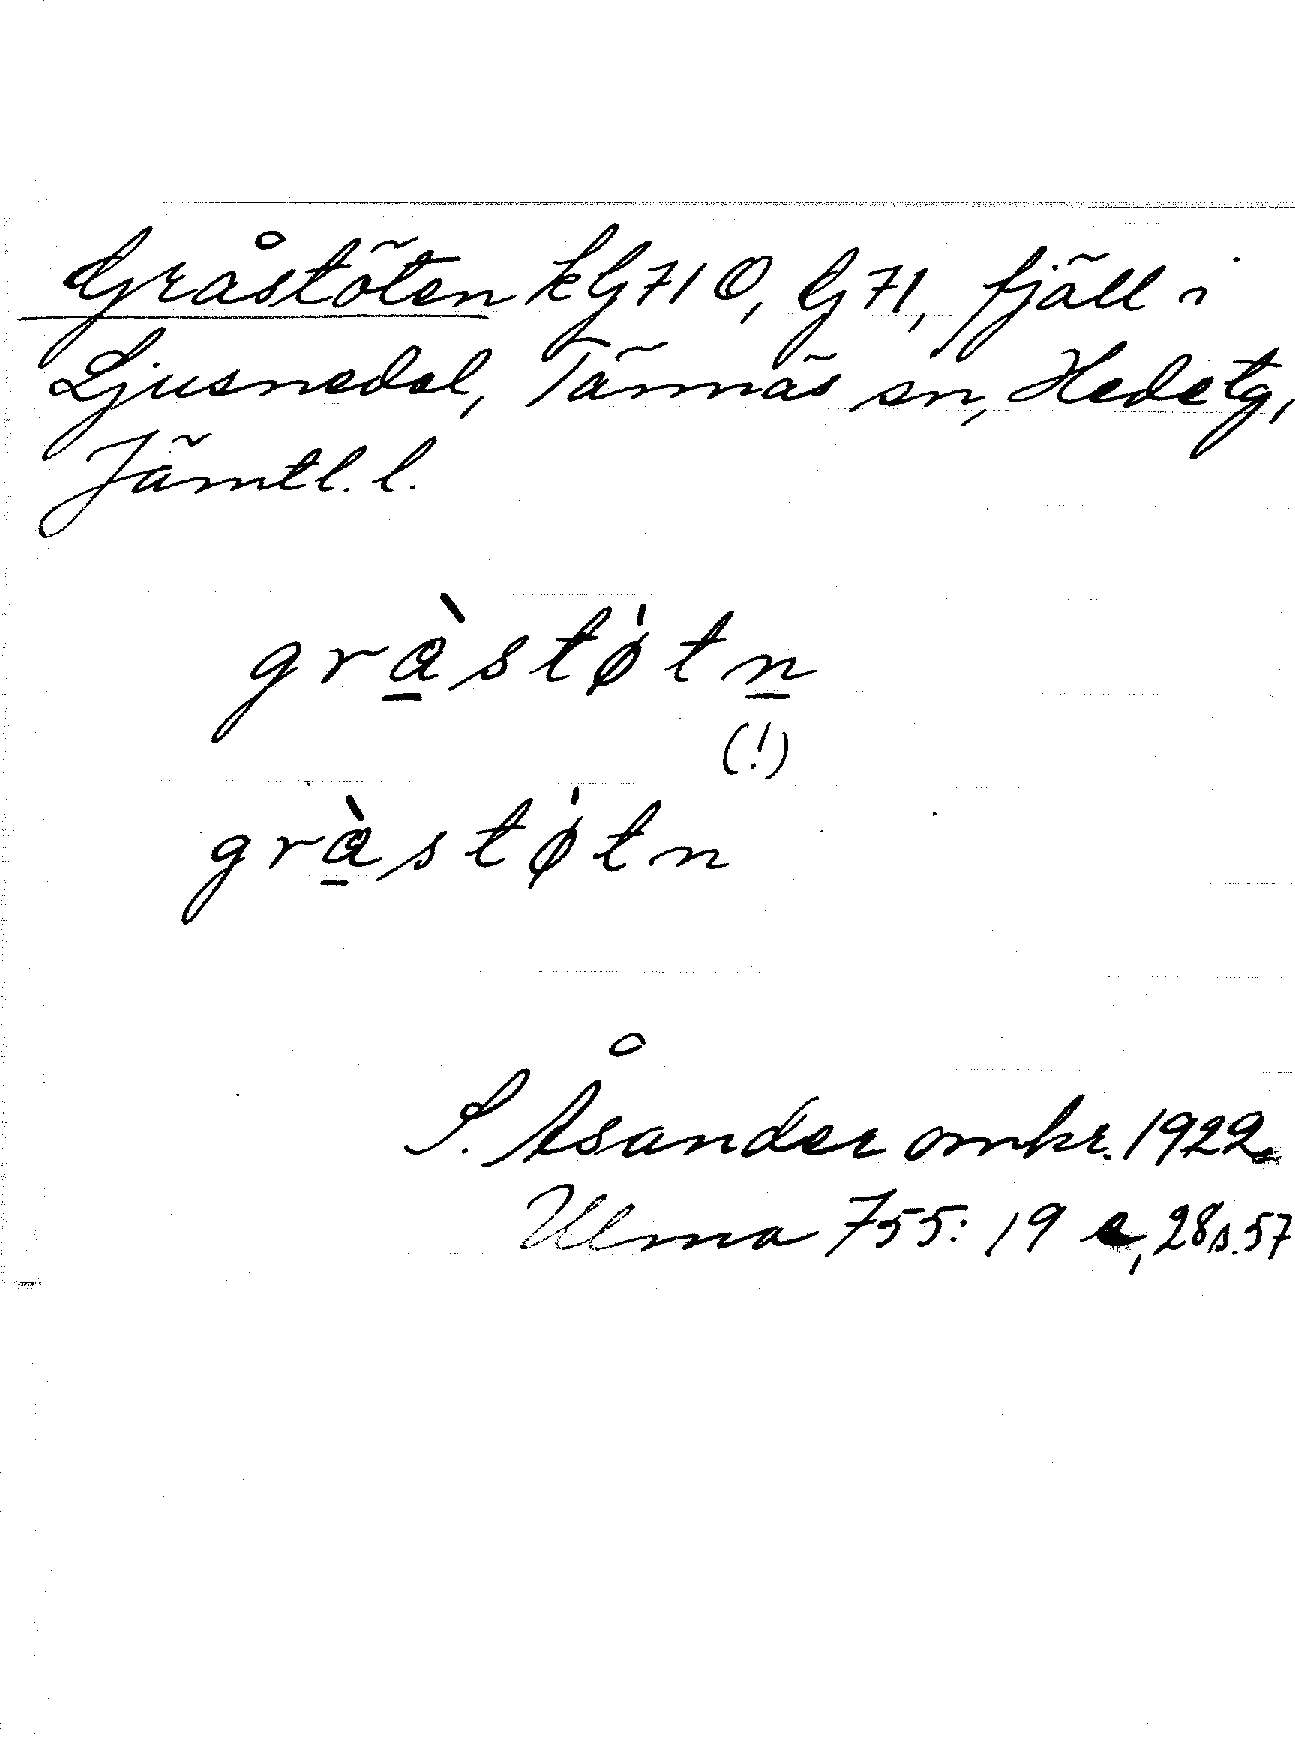 Gråstöten kG71 O, G71, fjäll i
Ljusnedal, Tännäs sn, Hede tg,
Jämtl. l.
grå̱̀støtṉ
(!)
grå̱̀støtn
S. Åsander omkr. 1922.
Ulma 755: 19 e, 28 s. 57